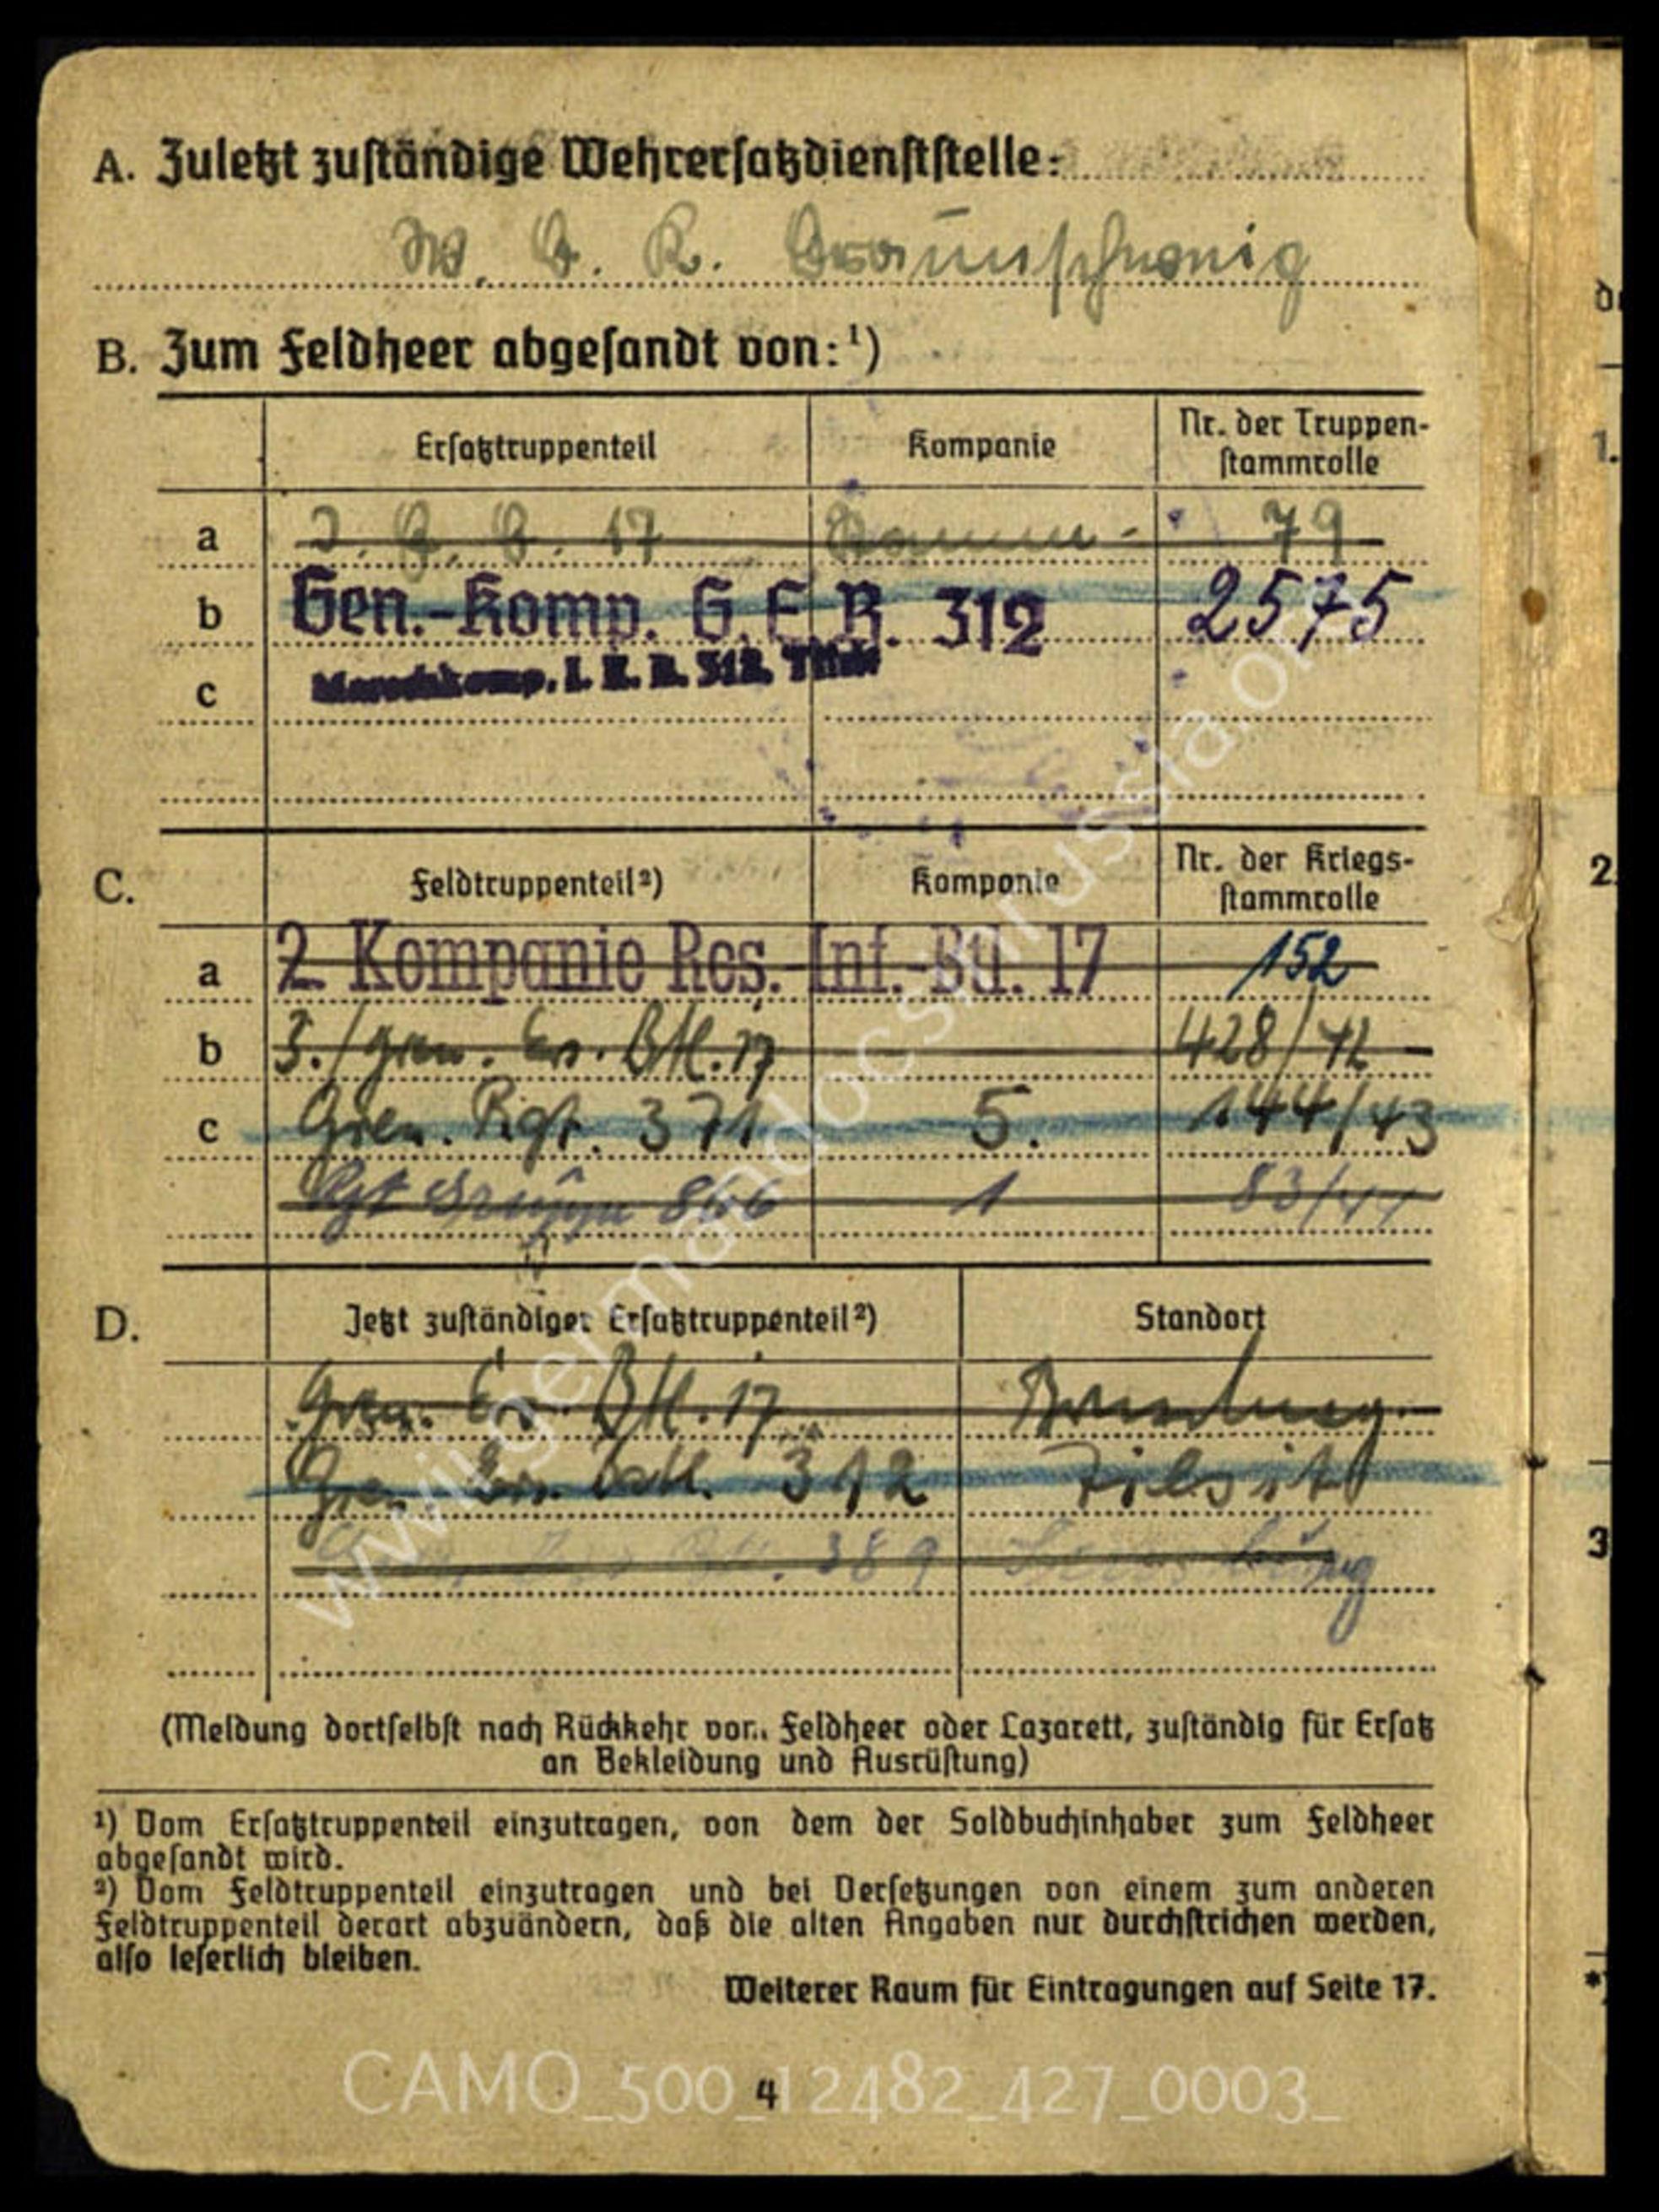 A. Zuletzt zuständige Wehrersatzdienststelle:
W. B. K. Braunschweig
B. Zum Feldheer abgesandt von: ¹)
Ersatztruppenteil Kompanie Nr. der Truppen-
stammrolle
a J. E. B. 17 Stamm- 79
b Gen.-Komp. G. E. B. 312 2575
c Marschkomp. I. E. B. 312
C. Feldtruppenteil²) Kompanie Nr. der Kriegs-
stammrolle
a 2. Kompanie Res.-Inf.-Btl. 17 152
b 3./Gren. Ers. Btl. 17 428/42
c Gren. Rgt. 371 5. 144/43
Rgt 866 1 83/44
D. Jetzt zuständiger Ersatztruppenteil²) Standort
Gren. Ers. Btl. 17
Gren. Ers. Batl. 312 Tilsit
Btl. 389
(Meldung dortselbst nach Rückkehr vom Feldheer oder Lazarett, zuständig für Ersatz
an Bekleidung und Ausrüstung)
¹) Vom Ersatztruppenteil einzutragen, von dem der Soldbuchinhaber zum Feldheer
abgesandt wird.
²) Vom Feldtruppenteil einzutragen und bei Versetzungen von einem zum anderen
Feldtruppenteil derart abzuändern, daß die alten Angaben nur durchstrichen werden,
also leserlich bleiben.
Weiterer Raum für Eintragungen auf Seite 17.
4
CAMO_500_12482_427_0003_
www.germandocsinrussia.or
1.
2.
3
*)